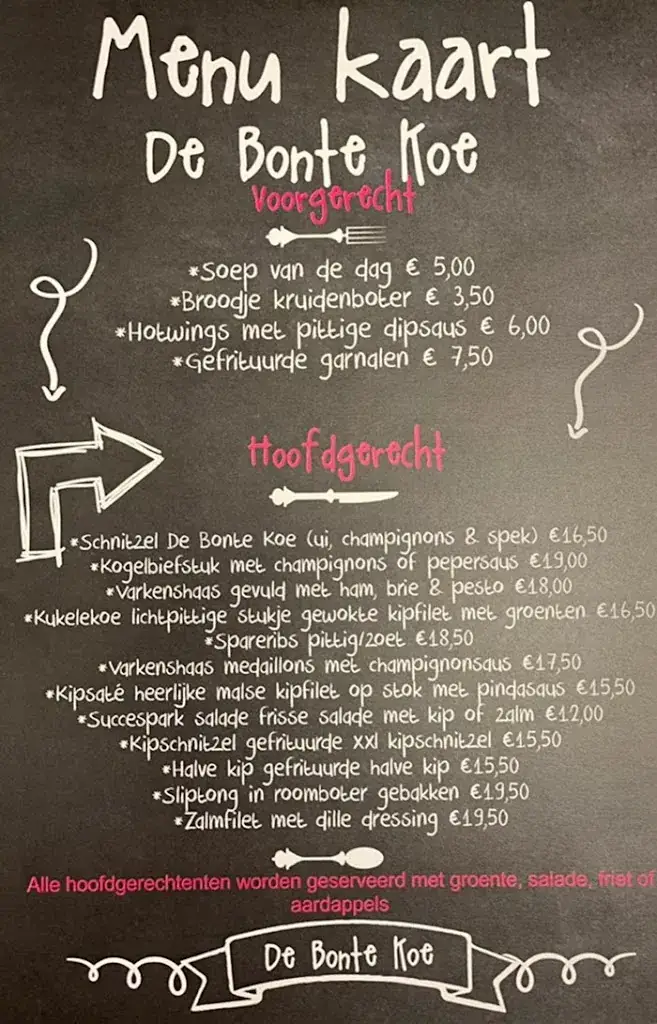 Menu kaart
De Bonte Koe
Voorgerecht
*Soep van de dag € 5,00
*Broodje kruidenboter € 3,50
*Hotwings met pittige dipsaus € 6,00
*Gefrituurde garnalen € 7,50
Hoofdgerecht
*Schnitzel De Bonte Koe (ui, champignons & spek) €16,50
*Kogelbiefstuk met champignons of pepersaus €19,00
*Varkenshaas gevuld met ham, brie & pesto €18,00
*Kukelekoe lichtpittige stukje gewokte kipfilet met groenten €16,50
*Spareribs pittig/zoet €18,50
*Varkenshaas medaillons met champignonsaus €17,50
*Kipsaté heerlijke malse kipfilet op stok met pindasaus €15,50
*Succespark salade frisse salade met kip of zalm €12,00
*Kipschnitzel gefrituurde xxl kipschnitzel €15,50
*Halve kip gefrituurde halve kip €15,50
*Sliptong in roomboter gebakken €19,50
*Zalmfilet met dille dressing €19,50
Alle hoofdgerechtenten worden geserveerd met groente, salade, friet of
aardappels
De Bonte Koe